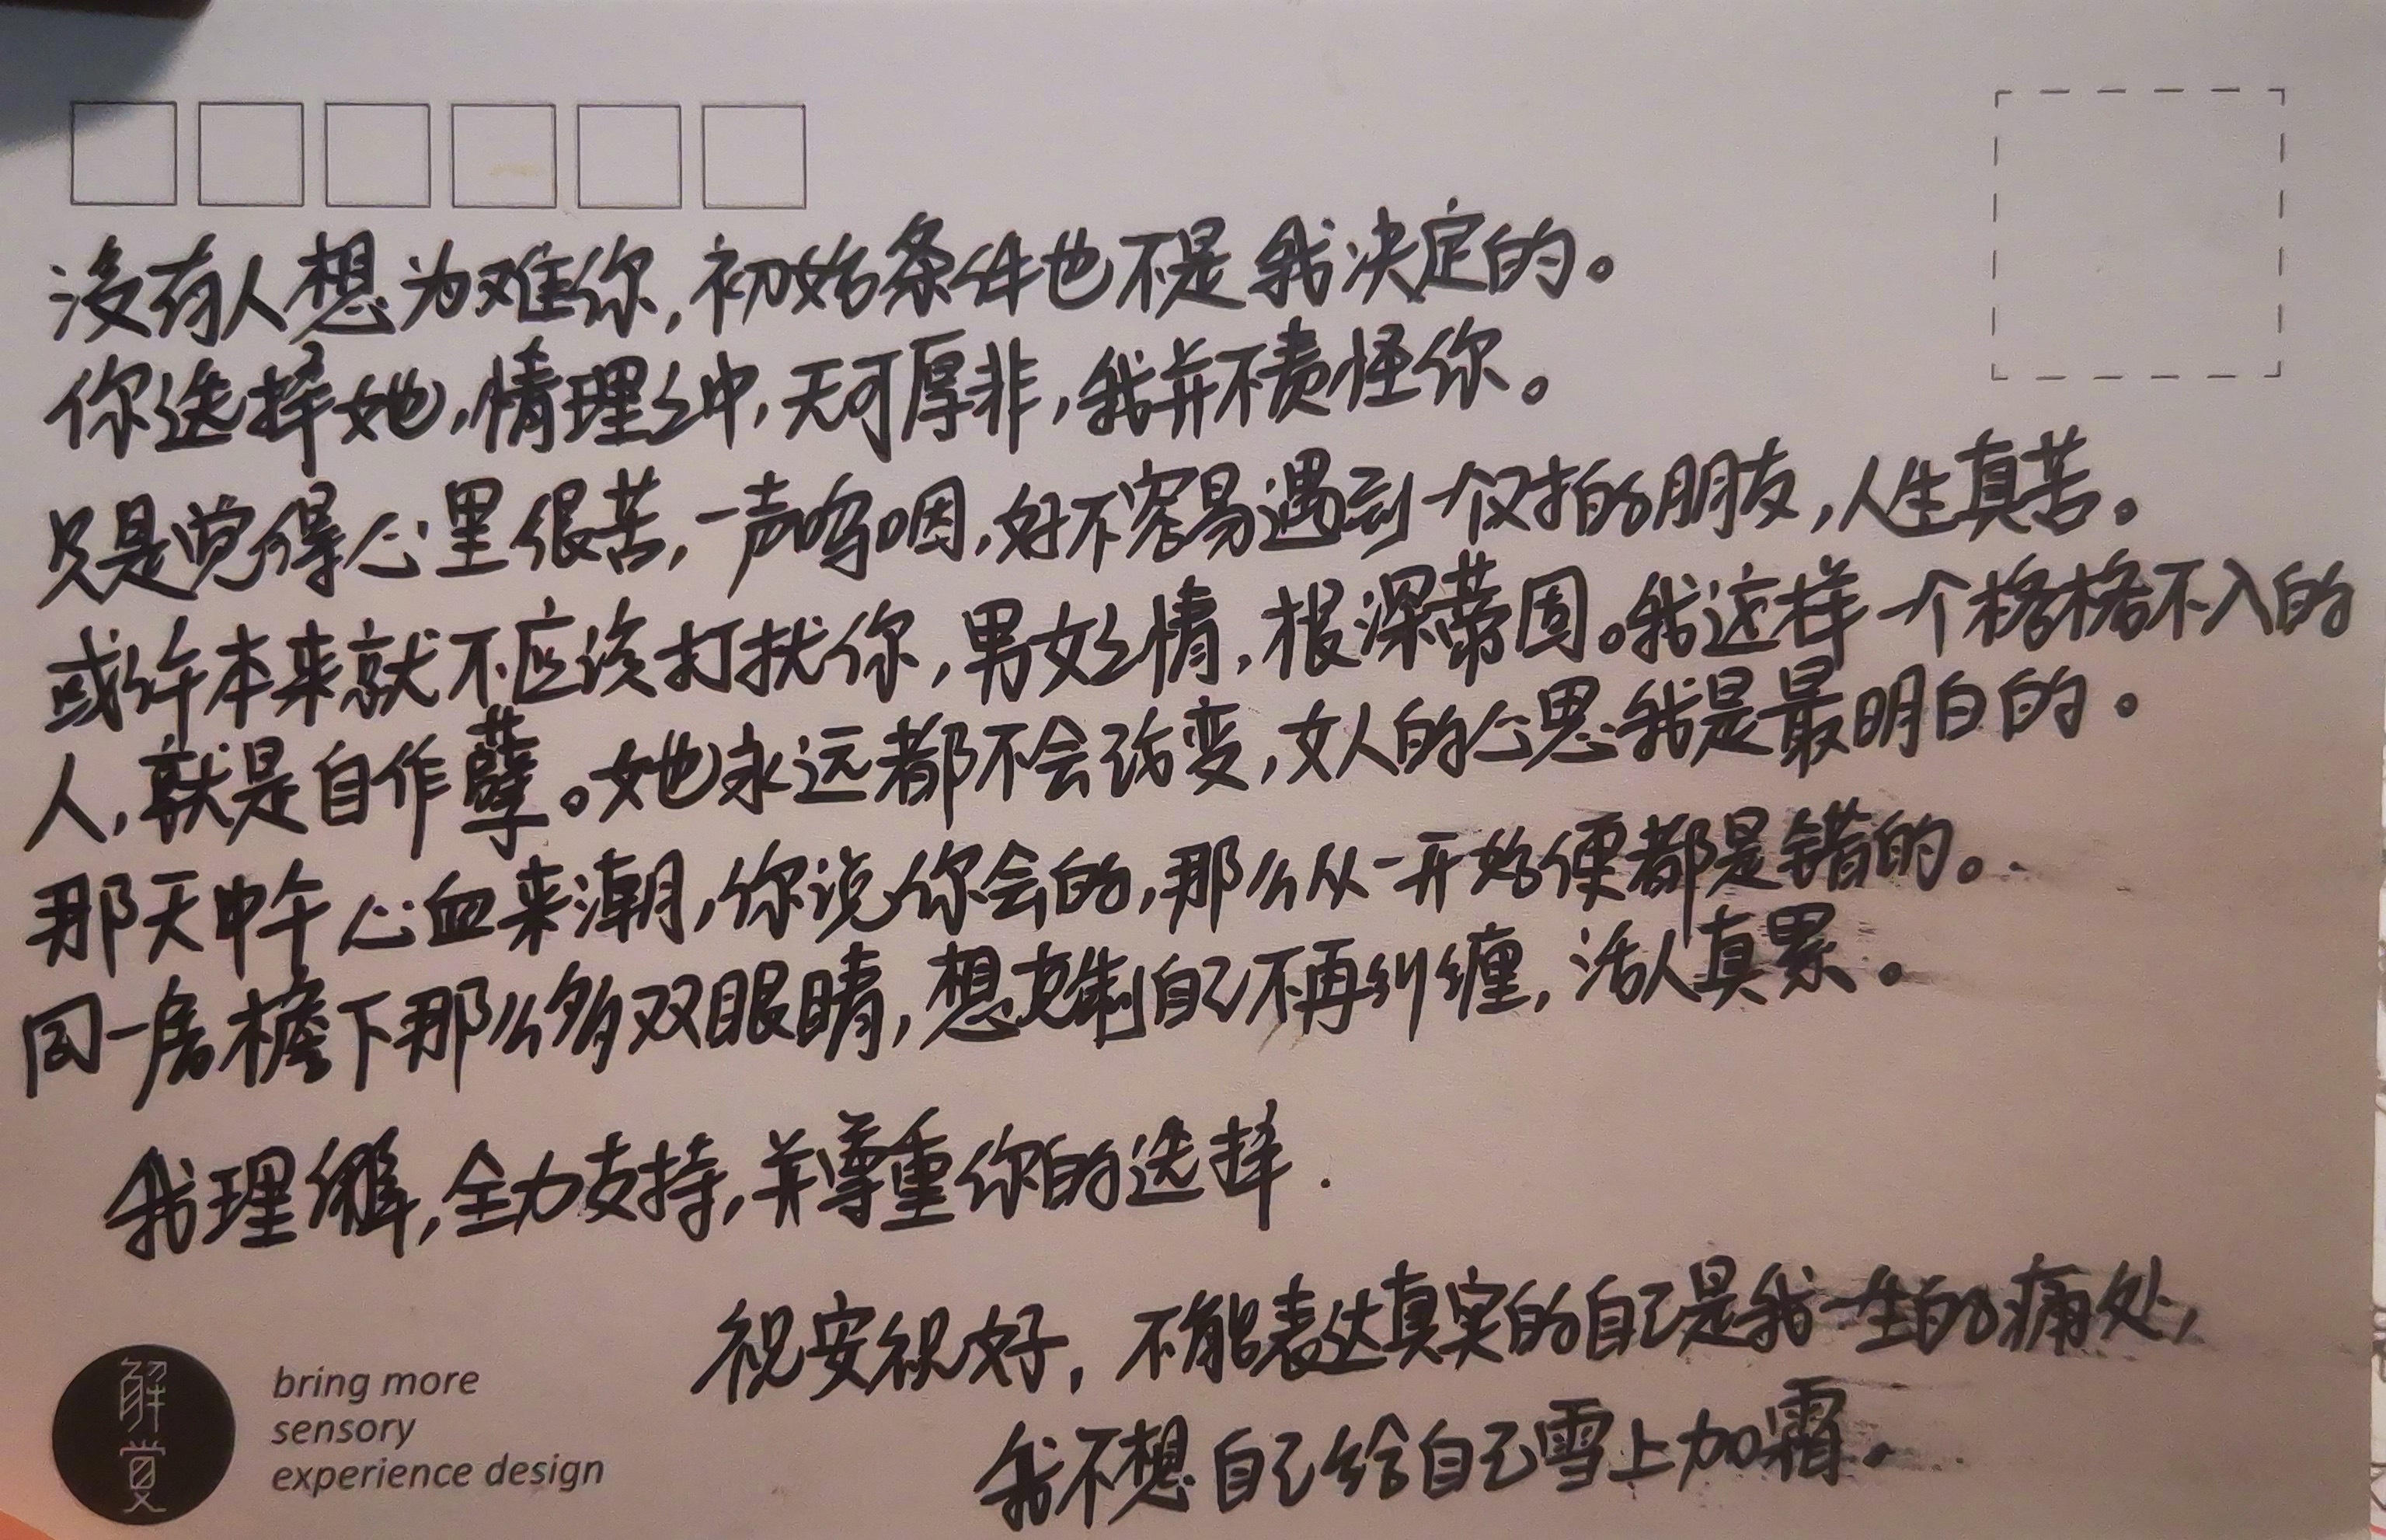 没有人想为难你,初始条件也不是我决定的。
你选择她,情理之中,无可厚非,我并不责怪你。
只是觉得心里很苦,一声呜咽,好不容易遇到一个仅有的朋友,人生真苦。
或许本来就不应该打扰你,男女之情,根深蒂固。我这样一个格格不入的
人,就是自作孽。她永远都不会改变,女人的心思我是最明白的。
那天中午心血来潮,你说你会的,那么从一开始便都是错的。
同一房檐下那么多双眼睛,想克制自己不再纠缠,活人真累。
我理解,全力支持,并尊重你的选择.
祝安祝好,不能表达真实的自己是我一生的痛处,
我不想自己给自己雪上加霜.
解
觉
bring more
sensory
experience design